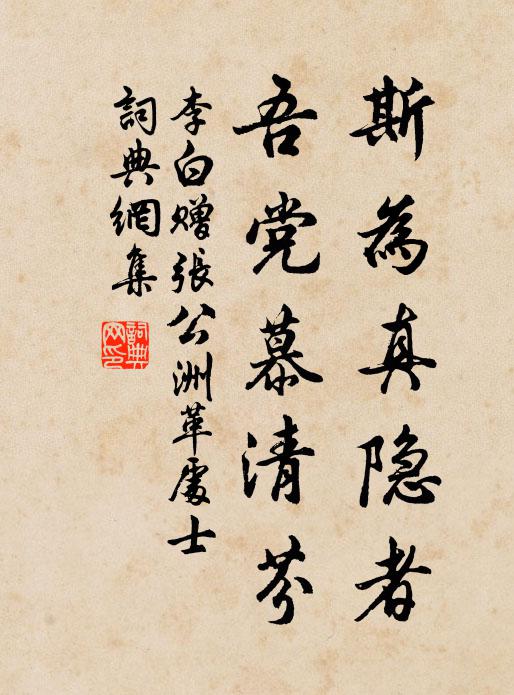 斯為真隐者
吾党慕清芬
李白赠張公洲革處士
詞典網集
詞典網印